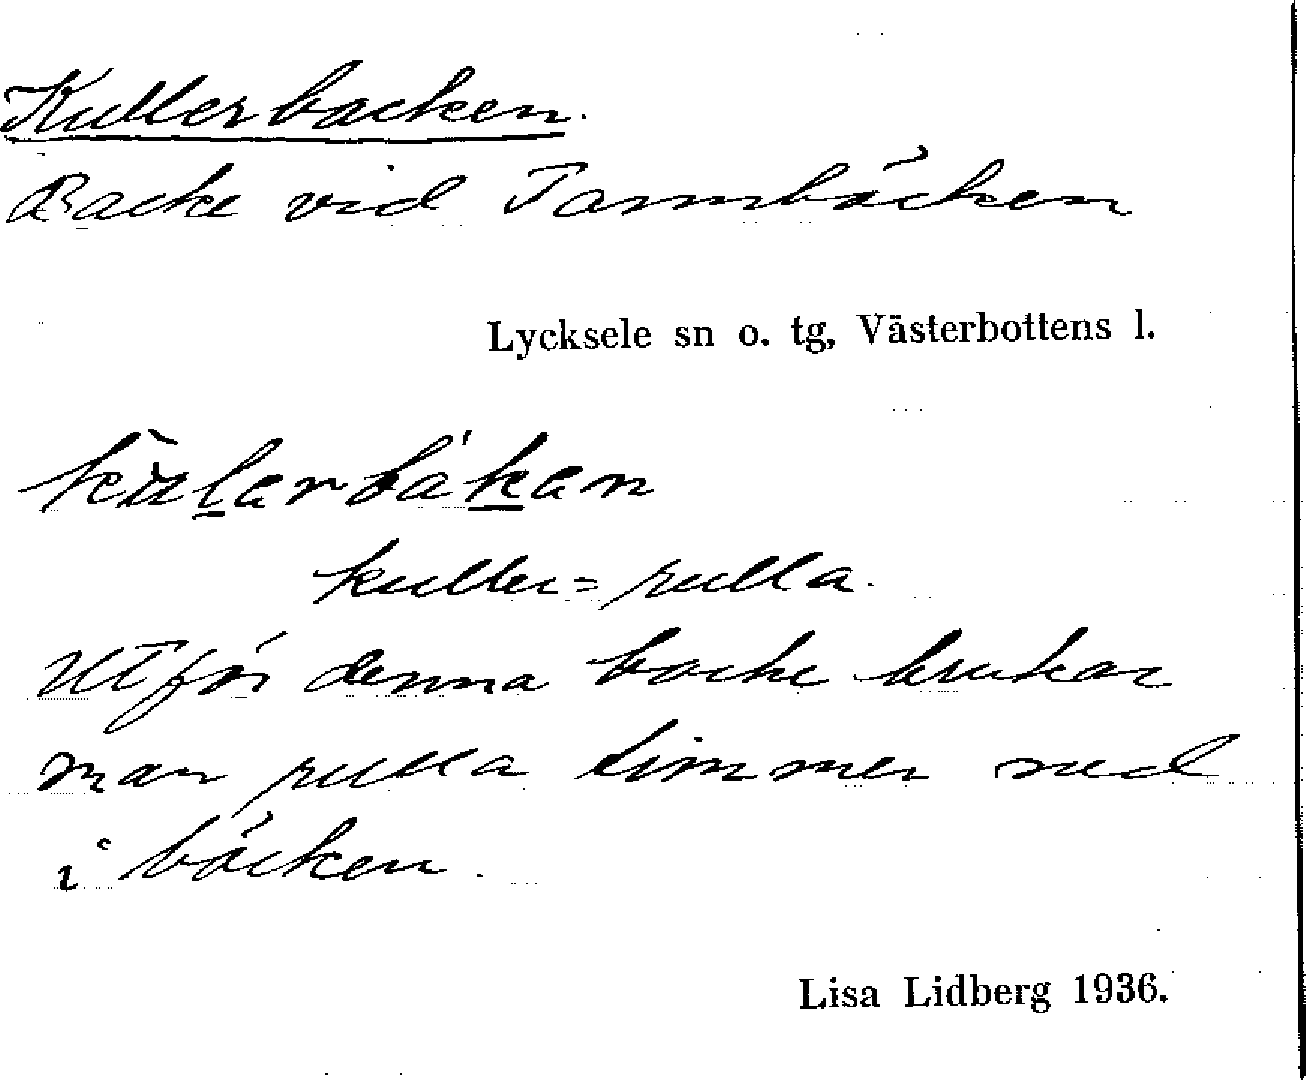 Kullerbacken.
Backe vid Tannbäcken
Lycksele sn o. tg, Västerbottens l.
kuller = rulla.
Utför denna backe brukar
man rulla timmer ned
i bäcken.
Lisa Lidberg 1936.